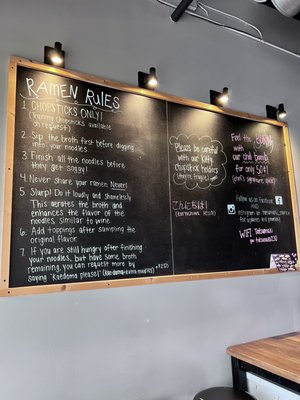 RAMEN RULES
1. CHOPSTICKS ONLY!
(training chopsticks available
on request)
2. Sip the broth first before digging
into your noodles.
3. Finish all the noodles before
they get soggy!
4. Never share your ramen. Never!
5. Slurp! Do it loudly and shamelessly.
This aerates the broth and
enhances the flavor of the
noodles, similar to wine.
6. Add toppings after sampling the
original flavor.
7. If you are still hungry after finishing
your noodles, but have some broth
remaining, you can request more by
saying "Kaedama please!"
Please be careful
with our kitty
chopstick holders
(they're fragile)
こんにちは!
Feel the
with our
our chili bomb
for only 50¢!
(chef's signature spicy)
Follow us on Facebook
AND
instagram
for updates and promos!
WIFI